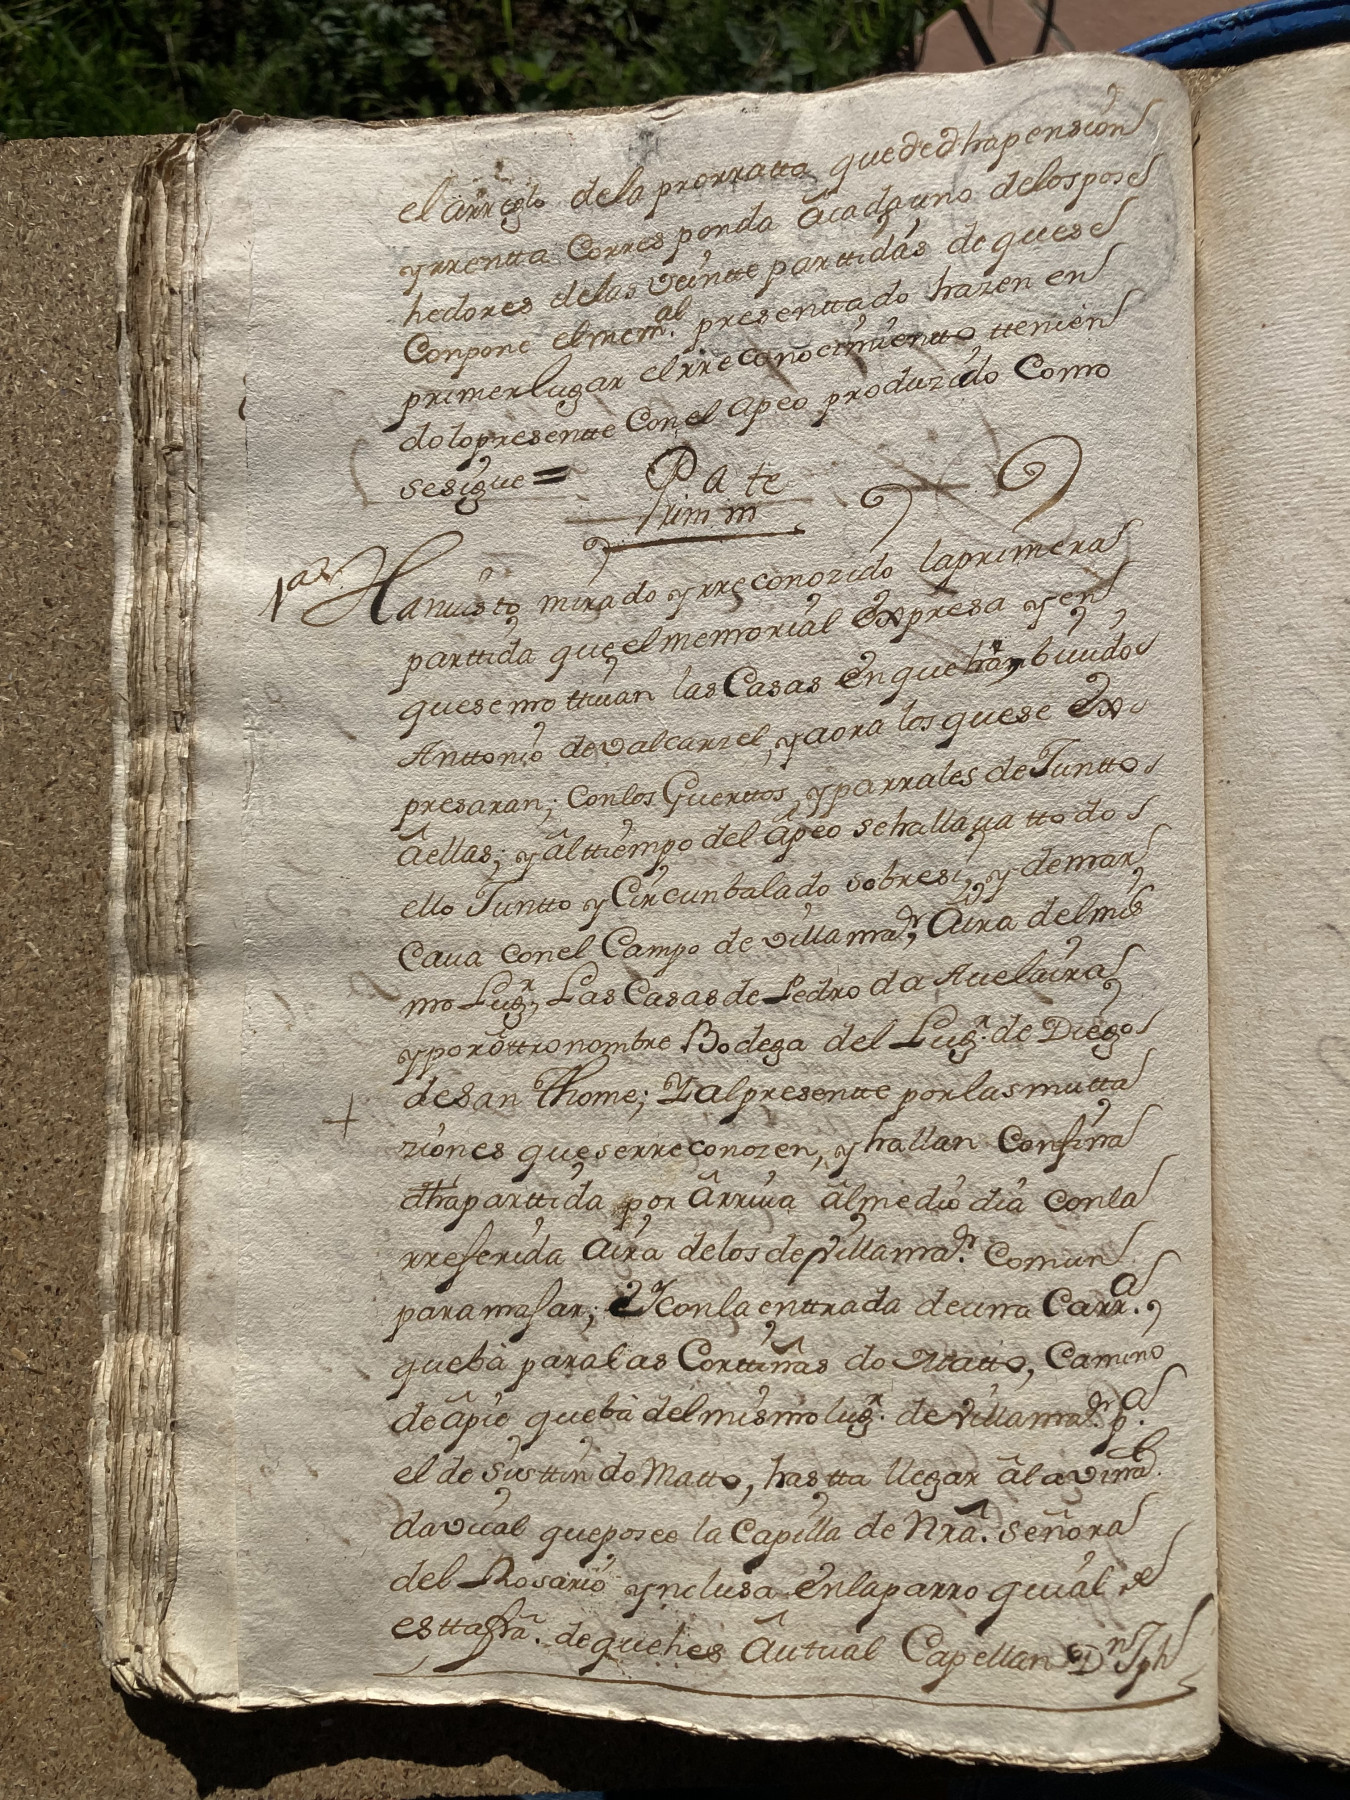 el arreglo dela prorratta que de dha pension
yrrentta Corresponda âcadauno delos pose
hedores delas veintte parttidas de quese
Conpone el mem.al presenttado hazen en
primer lugar el rreconocimientto ttenien
dolo presentte Con el apeo produzido Como
sesigue =
Pa te
Prim m
1.a Hanuisto mirado yrreconozido laprimera
parttida que el memorial expresa y en
quesemottiuan las Casas en que han buiudo
Anttonio devalcarzel, yaora los quese ex
presaran; conlos Guerttos, yparrales de Juntto
âellas; yâl ttiempo del âpeo sehallaua ttodo
ello Juntto y Circunbalado sobresi, y demar
caua conel Campo de villamar, Aira delmis
mo Lugr, Las Casas de Pedro da Auelaira
yporôttro nombre Bodega del Lugr. de Diego
desan Thome; Y al presentte por las mutta
ziones que serreconozen, y hallan Confina
dhaparttida por ârriua âlmedio dia conla
rreferida Aira delos de villamar. Comun
para mafar; Y con la enttrada de una Carr.a,
quebà para las Corttinas do Matto, Camino
de âpie quebà del mismo lugr. de villamar p.a
el do Susttin do Matto, hastta llegar âla vinna
davual queposee la Capilla de Nrâ. señora
del Rosario ynclusa en la parroquial de
estta frâ. de quehes âutual Capellan Dn Jph